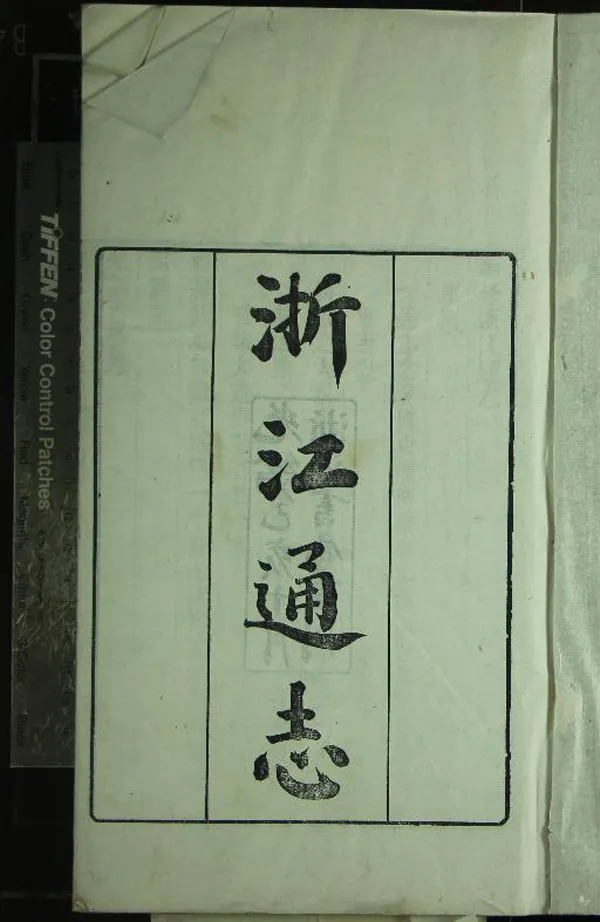 浙江通志
TIFFEN Color Control Patches
Blue Cyan Green Yellow Red Magenta White 3/Color Black